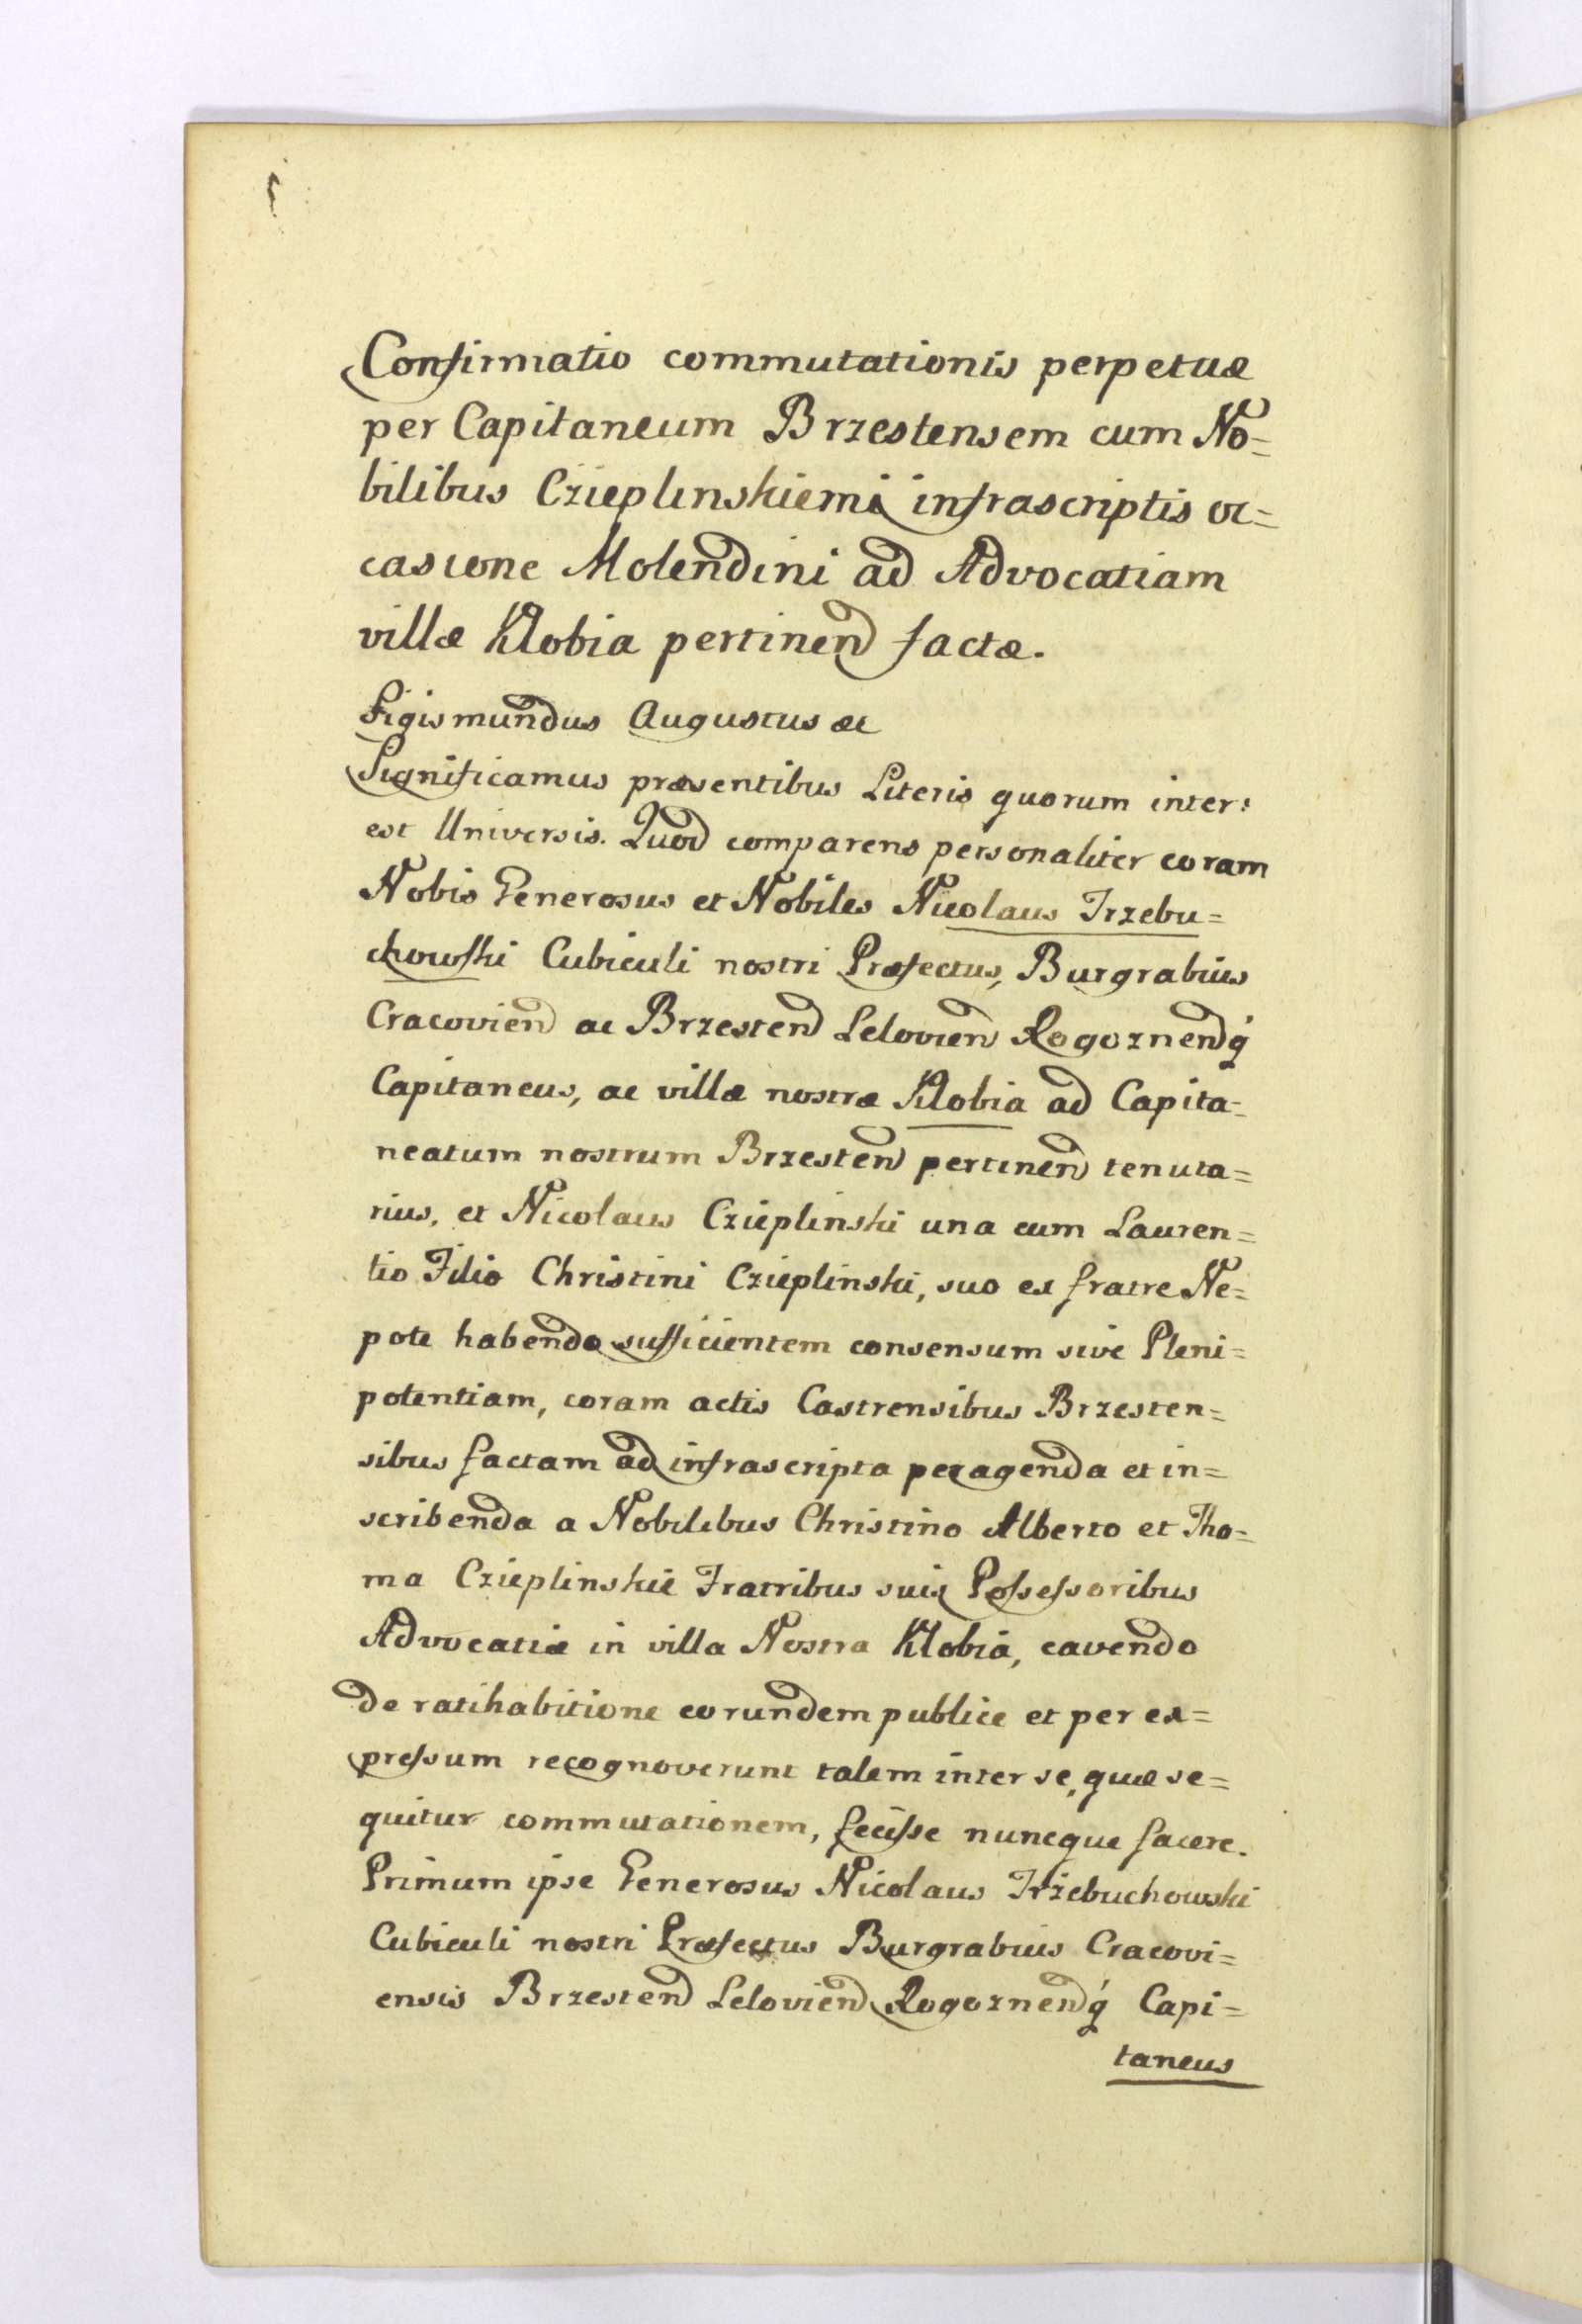 Confirmatio commutationis perpetuæ
per Capitaneum Brzestensem cum No=
bilibus Czieplinskiemi infrascriptis oc=
casione Molendini ad Advocatiam
villæ Klobia pertinen͠d factæ.
Sigismundus Augustus &c
Significamus præsentibus Literis quorum inter:
est Universis. Quod comparens personaliter coram
Nobis Generosus et Nobiles Nicolaus Trzebu=
chowski Cubiculi nostri Præfectus, Burgrabius
Cracovien͠d ac Brzesten͠d Lelovien͠d Rogoznen͠dq́
Capitaneus, ac villæ nostræ Klobia ad Capita=
neatum nostrum Brzesten͠d pertinen͠d tenuta=
rius, et Nicolaus Czieplinski una cum Lauren=
tio Filio Christini Czieplinski, suo ex fratre Ne=
pote habendo sufficientem consensum sive Pleni=
potentiam, coram actis Castrensibus Brzesten=
sibus factam ad infrascripta peragenda et in=
scribenda a Nobilibus Christino Alberto et Tho=
ma Czieplinskie Fratribus suis Possessoribus
Advocatiæ in villa Nostra Klobia, cavendo
de ratihabitione eorundem publice et per ex=
pressum recognoverunt talem inter se, quæ se=
quitur commutationem, fecisse nuncque facere.
Primum ipse Generosus Nicolaus Trzebuchowski
Cubiculi nostri Præfectus Burgrabius Cracovi=
ensis Brzesten͠d Lelovien͠d Rogoznen͠dq́ Capi=
taneus